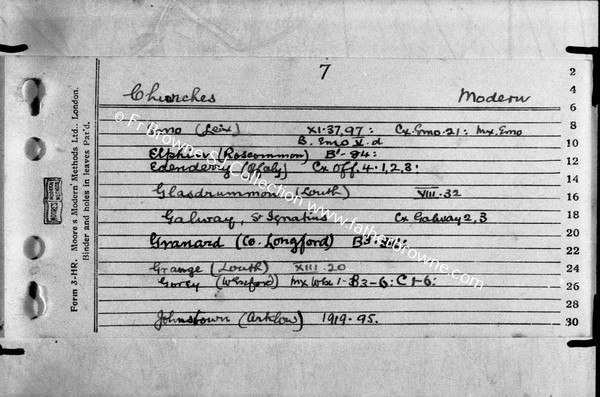 7
Churches Modern
2
4
6
8
10
12
14
16
18
20
22
24
26
28
30
Emo (Leix) XI.37,97: Cx Emo.21: Mx, Emo
B. Emo V.d
Elphin (Roscommon) B'-84:
Edenderry (Offaly) Cx Off. 4.1,2,3:
Glasdrummon (Louth) VIII.32
Galway, St Ignatius Cx Galway 2,3
Granard (Co. Longford)
Grange (Louth) XIII.20
Gorey (Wexford) Mx Wex 1-B3-6: C1-6:
Johnstown (Arklow) 1919.95.
Form 3-HR. Moore's Modern Methods Ltd. London.
Binder and holes in leaves Pat'd.
MOORE'S MODERN METHODS
© Fr Browne SJ Collection www.fatherbrowne.com